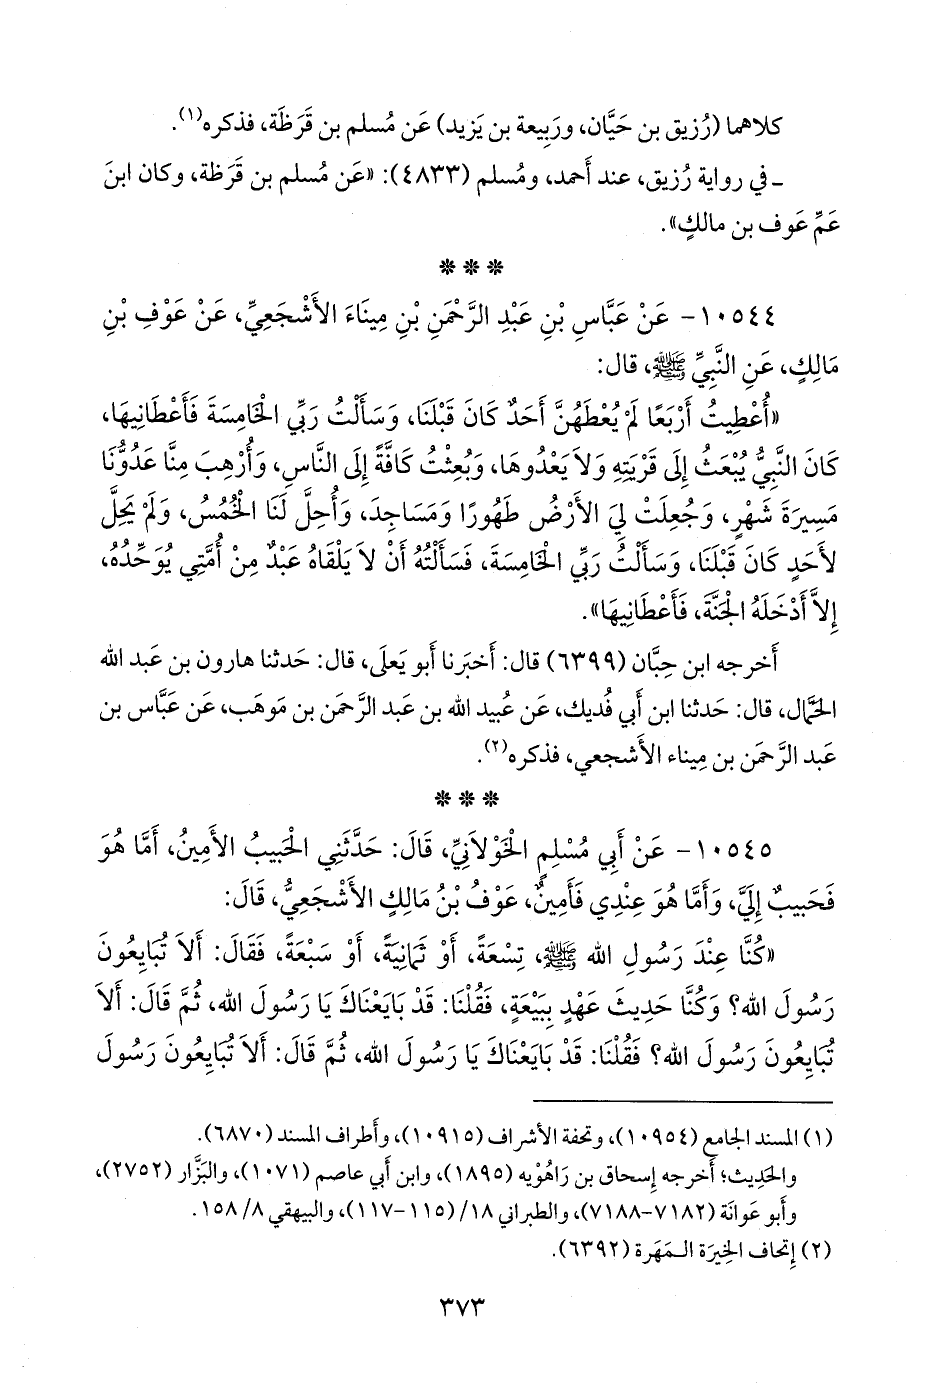 كلاهما (رُزيق بن حَيَّان، ورَبِيعة بن يَزيد) عَن مُسلم بن قَرَظَة، فذكره(١).
ـ في رواية رُزيق، عند أحمد، ومُسلم (٤٨٣٣): «عَن مُسلم بن قَرَظة، وكان ابنَ
عَمِّ عَوف بن مالكٍ».
* * *
١٠٥٤٤- عَنْ عَبَّاسِ بْنِ عَبْدِ الرَّحْمَنِ بْنِ مِينَاءَ الأَشْجَعِيِّ، عَنْ عَوْفِ بْنِ
مَالِكٍ، عَنِ النَّبِيِّ ﷺ، قال:
«أُعْطِيتُ أَرْبَعًا لَمْ يُعْطَهُنَّ أَحَدٌ كَانَ قَبْلَنَا، وَسَأَلْتُ رَبِّي الْخَامِسَةَ فَأَعْطَانِيهَا،
كَانَ النَّبِيُّ يُبْعَثُ إِلَى قَرْيَتِهِ وَلاَ يَعْدُوهَا، وَبُعِثْتُ كَافَّةً إِلَى النَّاسِ، وَأُرْهِبَ مِنَّا عَدُوُّنَا
مَسِيرَةَ شَهْرٍ، وَجُعِلَتْ لِيَ الأَرْضُ طَهُورًا وَمَسَاجِدَ، وَأُحِلَّ لَنَا الْخُمُسُ، وَلَمْ يَحِلَّ
لأَحَدٍ كَانَ قَبْلَنَا، وَسَأَلْتُ رَبِّي الْخَامِسَةَ، فَسَأَلْتُهُ أَنْ لاَ يَلْقَاهُ عَبْدٌ مِنْ أُمَّتِي يُوَحِّدُهُ،
إِلاَّ أَدْخَلَهُ الْجَنَّةَ، فَأَعْطَانِيهَا».
أَخرجه ابن حِبَّان (٦٣٩٩) قال: أَخبَرنا أَبو يَعلَى، قال: حَدثنا هارون بن عَبد الله
الحَمَّال، قال: حَدثنا ابن أَبي فُديك، عَن عُبيد الله بن عَبد الرَّحمَن بن مَوهَب، عَن عبَّاس بن
عَبد الرَّحمَن بن مِيناء الأَشجعي، فذكره(٢).
* * *
١٠٥٤٥- عَنْ أَبِي مُسْلِمٍ الْخَوْلاَنِيِّ، قَالَ: حَدَّثَنِي الْحَبِيبُ الأَمِينُ، أَمَّا هُوَ
فَحَبِيبٌ إِلَيَّ، وَأَمَّا هُوَ عِنْدِي فَأَمِينٌ، عَوْفُ بْنُ مَالِكٍ الأَشْجَعِيُّ، قَالَ:
«كُنَّا عِنْدَ رَسُولِ الله ﷺ، تِسْعَةً، أَوْ ثَمَانِيَةً، أَوْ سَبْعَةً، فَقَالَ: أَلاَ تُبَايِعُونَ
رَسُولَ الله؟ وَكُنَّا حَدِيثَ عَهْدٍ بِبَيْعَةٍ، فَقُلْنَا: قَدْ بَايَعْنَاكَ يَا رَسُولَ الله، ثُمَّ قَالَ: أَلاَ
تُبَايِعُونَ رَسُولَ الله؟ فَقُلْنَا: قَدْ بَايَعْنَاكَ يَا رَسُولَ الله، ثُمَّ قَالَ: أَلاَ تُبَايِعُونَ رَسُولَ
(١) المسند الجامع (١٠٩٥٤)، وتحفة الأشراف (١٠٩١٥)، وأَطراف المسند (٦٨٧٠).
والحَدِيث؛ أَخرجه إِسحاق بن رَاهُوْيه (١٨٩٥)، وابن أَبي عاصم (١٠٧١)، والبَزَّار (٢٧٥٢)،
وأَبو عَوانَة (٧١٨٢-٧١٨٨)، والطبراني ١٨/(١١٥-١١٧)، والبيهقي ٨/ ١٥٨.
(٢) إِتحاف الخِيرَة المَهَرة (٦٣٩٢).
٣٧٣